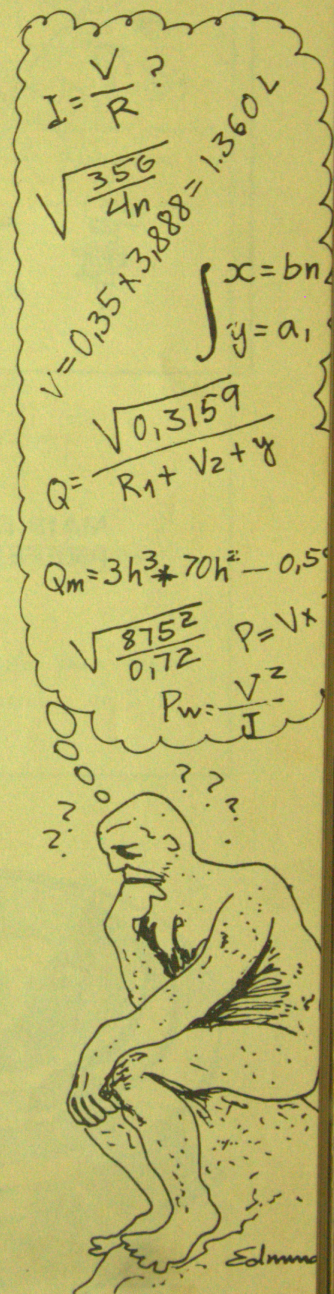 I = V/R ?
√356/4n
V = 0,35 x 3,888 = 1.360 L
∫ x = bn
y = a,
Q = √0,3159 / R1 + V2 + y
Qm = 3h³ * 70h² — 0,5
√8752/0,72
P = Vx
Pw = V²/I
? ? ?
? ?
Edmund